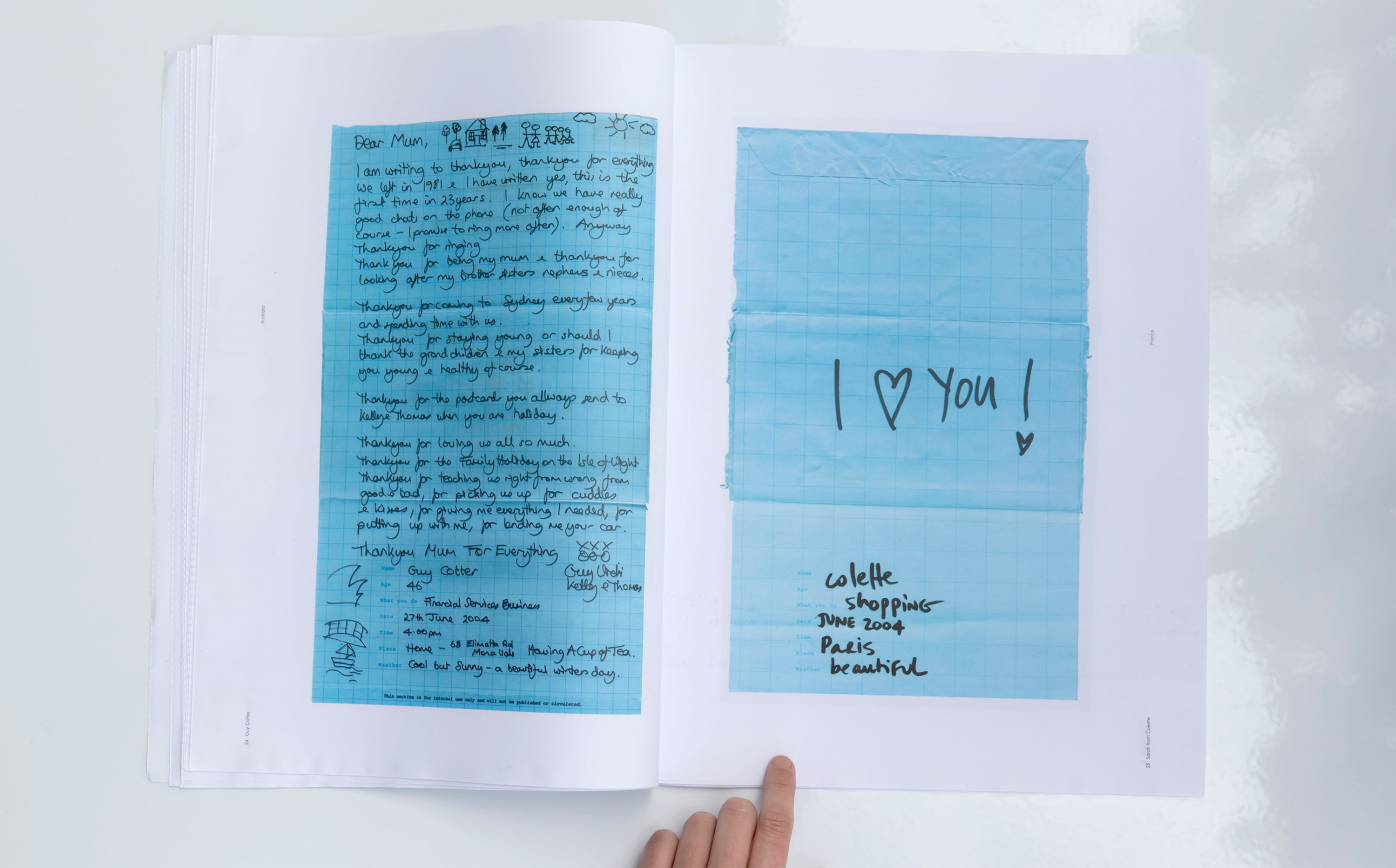 Dear Mum,
I am writing to thankyou, thankyou for everything
we left in 1981 & I have written yes, this is the
first time in 23 years. I know we have really
good chats on the phone (not often enough of
course – I promise to ring more often). Anyway
Thankyou for ringing
Thank you for being my mum & thankyou for
looking after my brother sisters nephews & nieces.
Thankyou for coming to Sydney every few years
and spending time with us.
Thankyou for staying young or should I
thank the grandchildren & my sisters for keeping
you young & healthy of course.
Thankyou for the postcards you allways send to
Kelley & Thomas when you are holiday.
Thankyou for loving us all so much.
Thankyou for the Family Holiday on the Isle of Wight
Thankyou for teaching us right from wrong from
good & bad, for picking us up for cuddles
& kisses, for giving me everything I needed, for
putting up with me, for lending me your car.
Thankyou Mum For Everything XXX
OOO
Guy
Kelley & Thomas
Name Guy Cotter
Age 46
What you do Financial Services Business
Date 27th June 2004
Time 4.00pm
Place Home – 68 Elimatta Rd
Mona Vale Having A Cup of Tea.
Weather Cool but Sunny – a beautiful winters day.
This section is for internal use only and will not be published or circulated.
Australia
24 Guy Cotter
I ♡ You !
Name colette
Age
What you do shopping
Date JUNE 2004
Time
Place Paris
Weather beautiful
France
25 Sarah from Colette